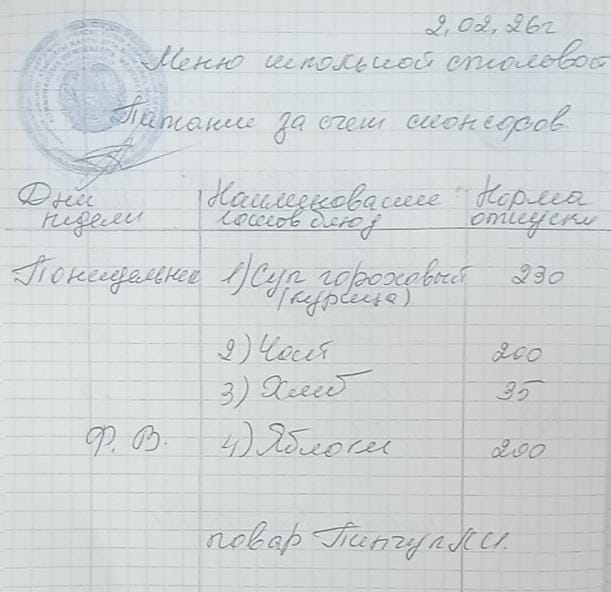 2,02,26г
Меню школьной столовой
Питание за счет спонсоров
Дни недели
Наименование блюд
Норма отпуски
Понедельник 1) Суп гороховый 230
(курица)
2) Чай 200
3) Хлеб 35
Ф. В. 4) Яблоки 200
повар